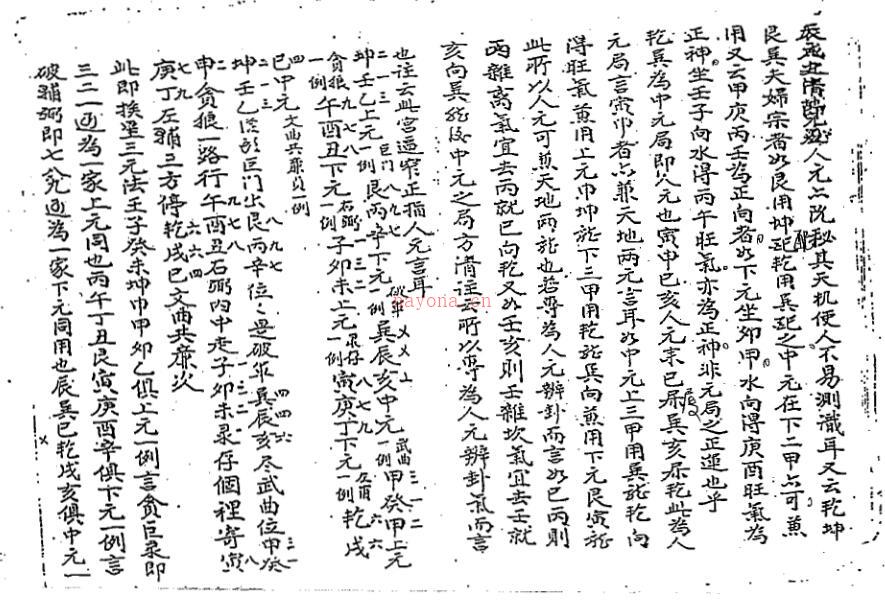 辰戌丑清皆死人元亦沉秘其天机使人不易測識耳又云乾坤
艮巽夫婦宗者如艮用坤配乾用巽配之中元在下二甲亦可兼
用又云甲庚丙壬為正向者如下元坐卯甲水向得庚酉旺氣為
正神坐壬子向水得丙午旺氣亦為正神非元局之正運也乎
乾巽為中元局即人元也寅申巳亥人元末巳屬巽亥屬乾此為人
元局言寅申者亦兼天地兩元言耳如中元上三甲用巽龍乾向
得旺氣兼用上元申坤龍下三甲用乾龍巽向兼用下元艮寅龍
此所以人元可兼天地兩龍也若專為人元辨卦而言如巳丙則
丙雜离氣宜去丙就巳向乾又如壬亥則壬雜坎氣宜去壬就
亥向巽龍後中元之局方清註云所以專為人元辨卦氣而言
也注云此宮逼窄正指人元言耳
坤壬乙上元一例艮丙辛下元一例巽辰亥中元一例甲癸申上元
貪狼 午酉丑下元一例子卯未上元一例寅庚丁下元一例乾戌
巳中元文曲共廉貞一例
坤壬乙 巨門出艮丙辛位位是破軍巽辰亥尽武曲位甲癸
申貪狼一路行午酉丑右弼内中走子卯未录存個裡寄寅
庚丁左輔三方停乾戌巳文曲共廉次
此即挨星三元法壬子癸未坤申甲卯乙俱上元一例言貪巨录即
三二一逈為一家上元同也丙午丁丑艮寅庚酉辛俱下元一例言
破輔弼即七八九逈為一家下元同用也辰巽巳乾戌亥俱中元一
nayona.cn